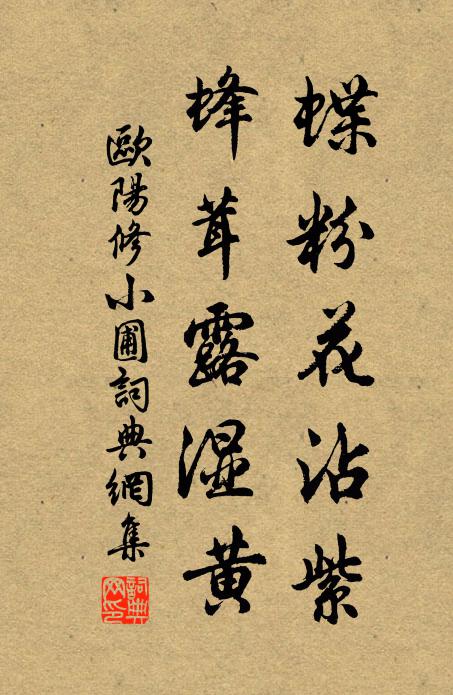 蝶粉花沾紫
蜂茸露湿黄
歐陽修小圃詞典網集
詞典網印